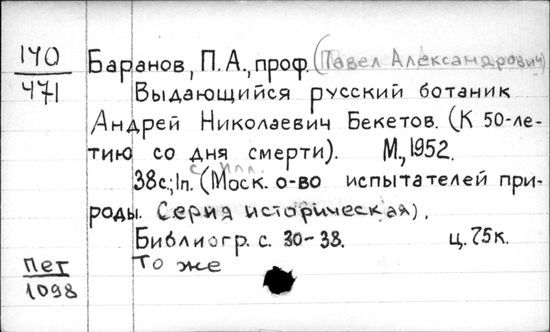 140
471
Баранов, П.А., проф. (Павел Александрович)
Выдающийся русский ботаник
Андрей Николаевич Бекетов. (К 50-ле-
тию со дня смерти). М., 1952.
с илл.
38с.; 1п. (Моск. о-во испытателей при-
роды. Серия историческая).
Библиогр. с. 30-38. ц. 75к.
То же
Пет
1098